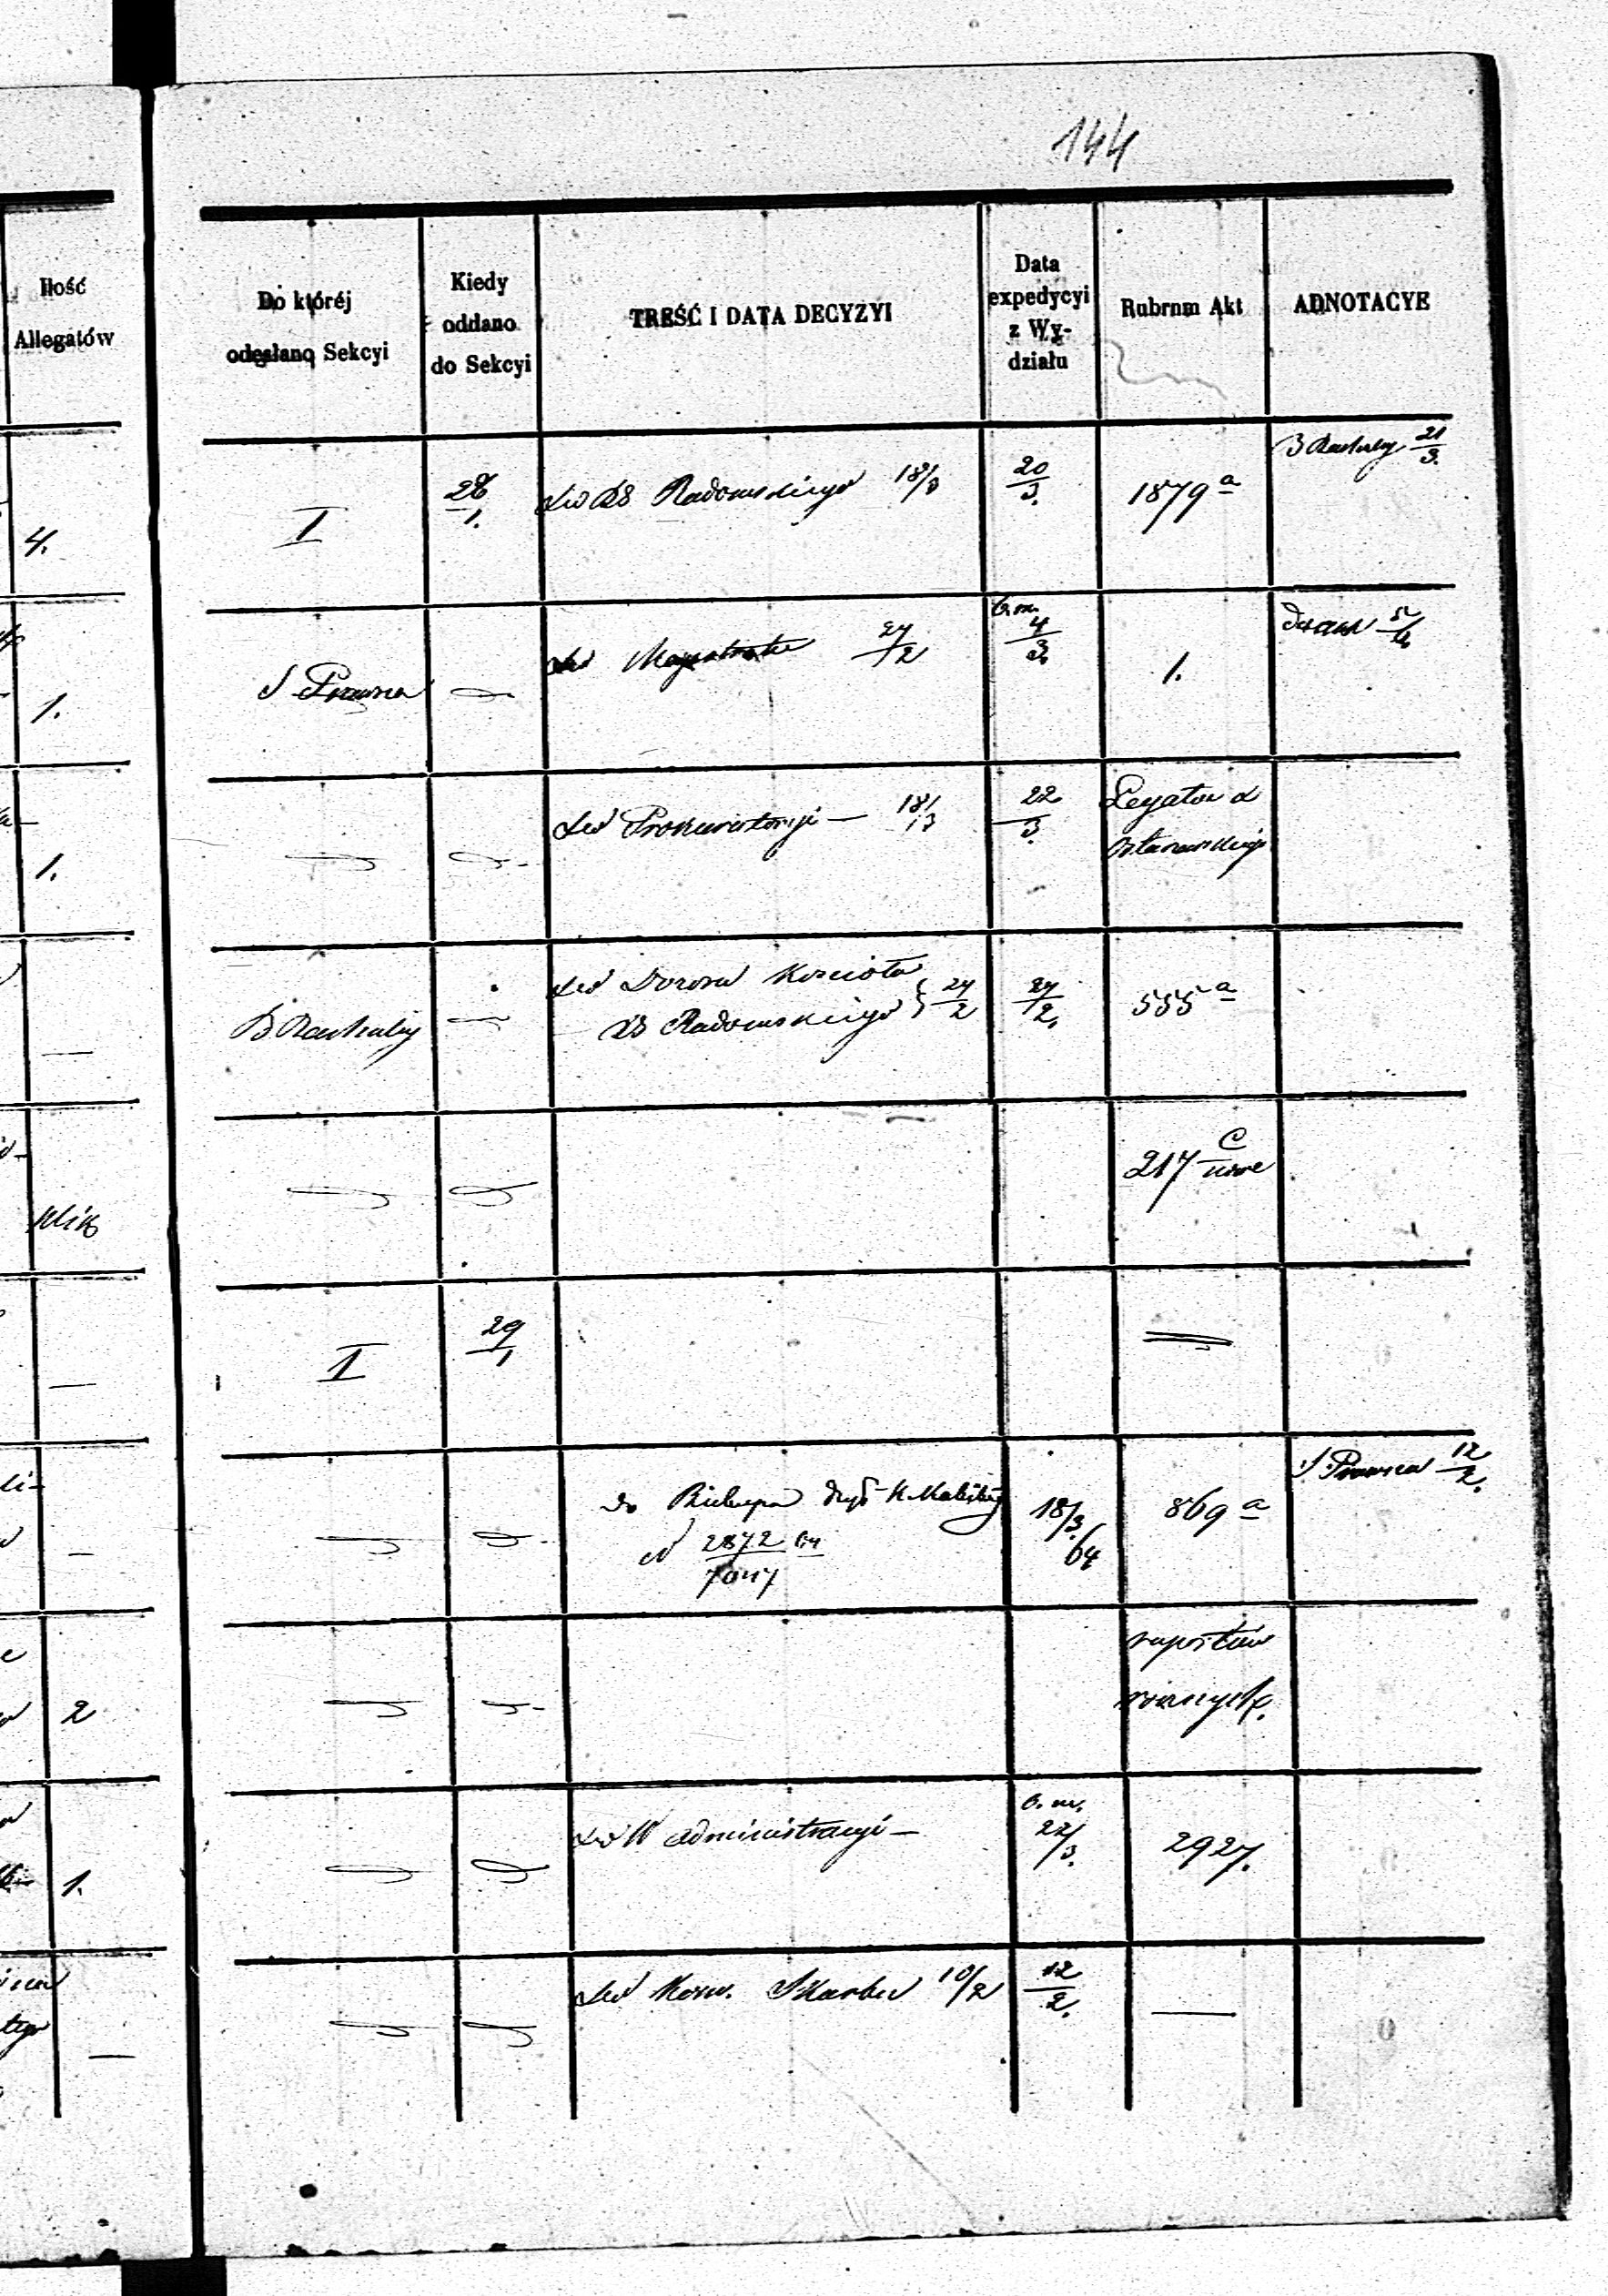 144
Ilość
Allegatów
Do któréj
odesłano Sekcyi
Kiedy
oddano
do Sekcyi
TREŚĆ I DATA DECYZYI
Data
expedycyi
z Wy-
działu
Rubrum Akt
ADNOTACYE
4.
I
28/1.
do RG Radomskiego 18/3
20/3.
1879 a
B Rachuby 21/3.
1.
S Prawna
do Magistratu 24/2
4/3.
1.
5/4
1.
do Prokuratoryi — 18/3
22/3.
Legatu
—
B Rachuby
do Dozoru Kościoła
Radomskiego } 24/2
24/2.
555 a
217 C
klik
—
I
29/1
—
do Biskupa Kaliskiej
N 2872 64
7047
18/3. 64
869 a
S Prawna 12/2.
2
raportów
różnych.
1.
do W Administracyi —
22/3.
2927.
—
do Kom. Skarbu 10/2
12/2.
—